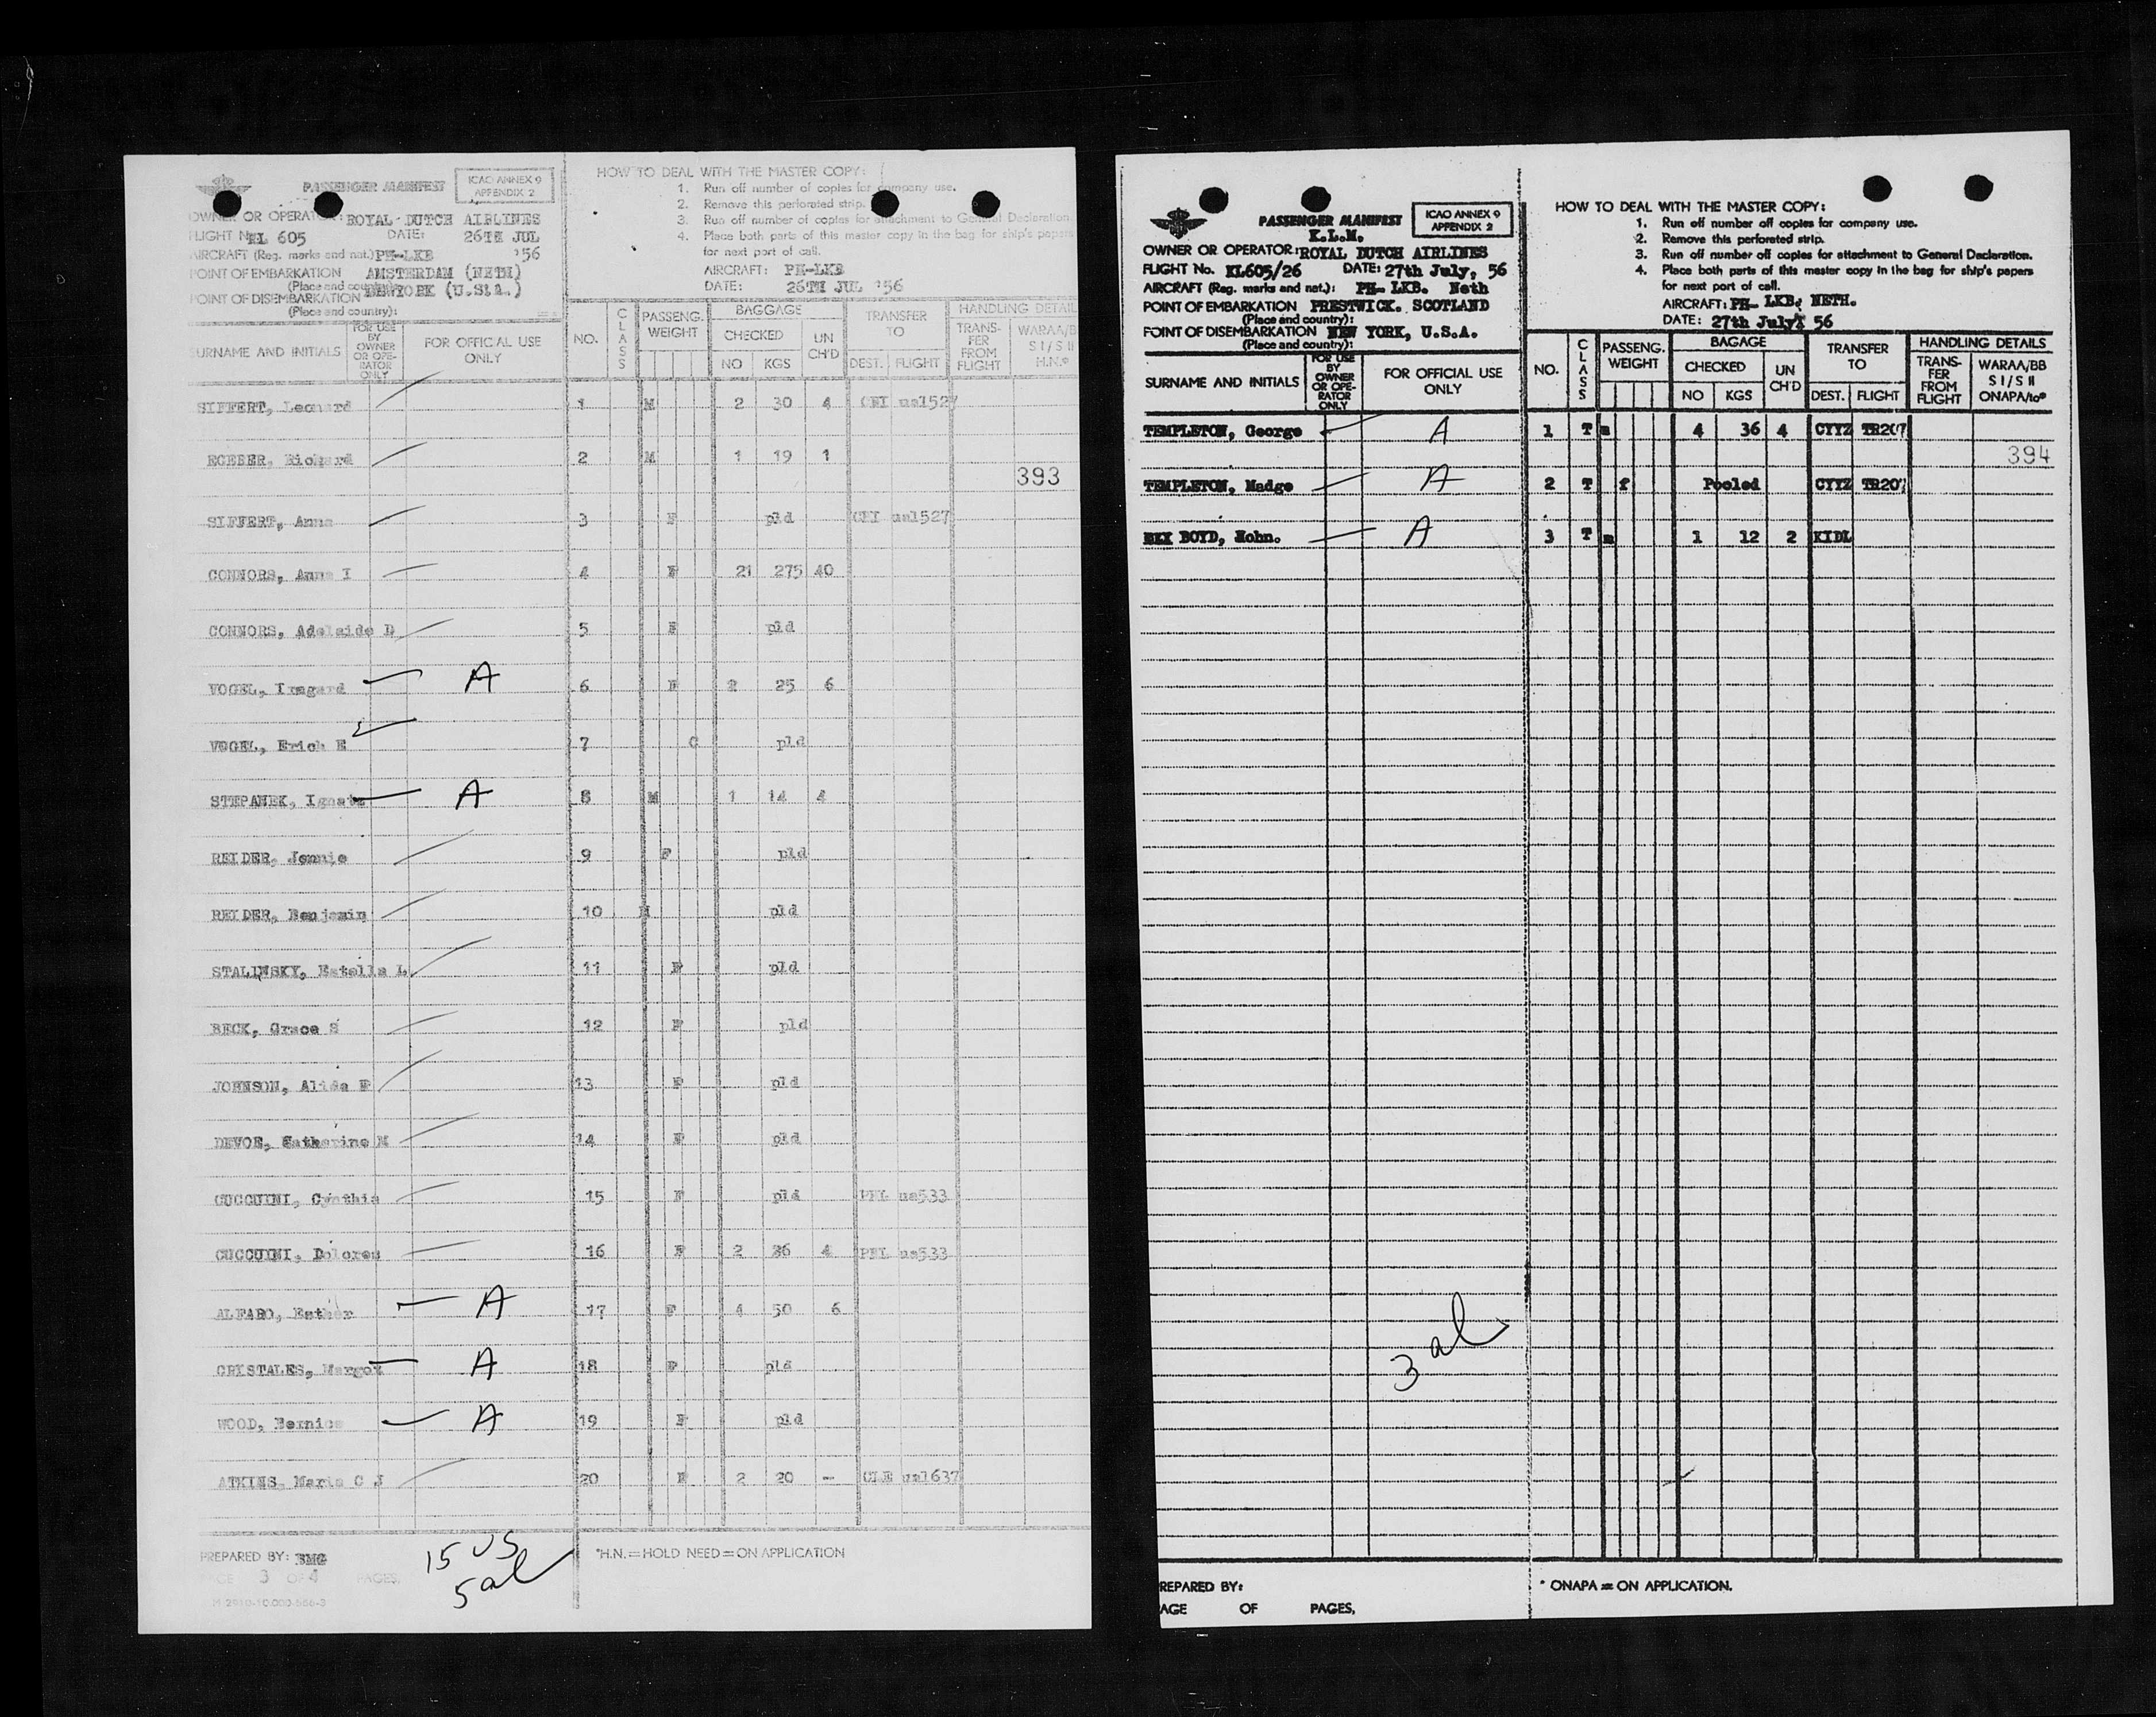 PASSENGER MANIFEST
ICAO ANNEX 9
APPENDIX 2
OWNER OR OPERATOR: ROYAL DUTCH AIRLINES
FLIGHT No KL 605 DATE: 26TH JUL
AIRCRAFT (Reg. marks and nat.) PH-LKB '56
POINT OF EMBARKATION AMSTERDAM (NETH)
(Place and country):
POINT OF DISEMBARKATION NEWYORK (U.StA.)
(Place and country):
HOW TO DEAL WITH THE MASTER COPY:
1. Run off number of copies for company use.
2. Remove this perforated strip.
3. Run off number of copies for attachment to General Declaration
4. Place both parts of this master copy in the bag for ship's papers
for next port of call.
AIRCRAFT: PH-LKB
DATE: 26TH JUL '56
SURNAME AND INITIALS FOR USE BY OWNER OR OPE-RATOR ONLY FOR OFFICIAL USE ONLY NO. CLASS PASSENG. WEIGHT BAGGAGE CHECKED NO KGS UN CH'D TRANSFER TO DEST. FLIGHT HANDLING DETAIL TRANS-FER FROM FLIGHT WARAA/B S I/S II H.N.*
SIFFERT, Leonard 1 M 2 30 4 CHI ua1527
EGEBER, Richard 2 M 1 19 1
393
SIFFERT, Anna 3 F pld CHI ua1527
CONNORS, Anna I 4 F 21 275 40
CONNORS, Adelaide D 5 F pld
VOGEL, Irmgard A 6 F 2 25 6
VOGEL, Erich E 7 C pld
STEPANEK, Ignatz A 8 M 1 14 4
REIDER, Jennie 9 F pld
REIDER, Benjamin 10 M pld
STALINSKY, Estella L 11 F pld
BECK, Grace S 12 F pld
JOHNSON, Alida F 13 F pld
DEVOE, Katherine M 14 F pld
CUCCUINI, Cynthia 15 F pld PHL ua533
CUCCUINI, Dolores 16 F 2 26 4 PHL ua533
ALFARO, Esther A 17 F 4 50 6
CRISTALES, Margot A 18 F pld
WOOD, Bernice A 19 F pld
ATKINS, Maria C J 20 F 2 20 - CLE ua1637
PREPARED BY: BMG
15 US
5 al
*H.N.=HOLD NEED=ON APPLICATION
PAGE 3 OF 4 PAGES.
PASSENGER MANIFEST
K.L.M.
ICAO ANNEX 9
APPENDIX 2
OWNER OR OPERATOR: ROYAL DUTCH AIRLINES
FLIGHT No. KL605/26 DATE: 27th July, 56
AIRCRAFT (Reg. marks and nat.): PH- LKB. Neth
POINT OF EMBARKATION PRESTWICK. SCOTLAND
(Place and country):
POINT OF DISEMBARKATION NEW YORK, U.S.A.
(Place and country):
HOW TO DEAL WITH THE MASTER COPY:
1. Run off number off copies for company use.
2. Remove this perforated strip.
3. Run off number off copies for attachment to General Declaration.
4. Place both parts of this master copy in the bag for ship's papers
for next port of call.
AIRCRAFT: PH- LKB. NETH.
DATE: 27th July 56
SURNAME AND INITIALS FOR USE BY OWNER OR OPE-RATOR ONLY FOR OFFICIAL USE ONLY NO. CLASS PASSENG. WEIGHT BAGAGE CHECKED NO KGS UN CH'D TRANSFER TO DEST. FLIGHT HANDLING DETAILS TRANS-FER FROM FLIGHT WARAA/BB S I/S II ONAPA/to*
TEMPLETON, George A 1 T m 4 36 4 CYYZ TR207
394
TEMPLETON, Madge A 2 T f Pooled CYYZ TR207
BOYD, A 3 T m 1 12 2 KIDL
3 al
REPARED BY:
AGE OF PAGES,
* ONAPA = ON APPLICATION.